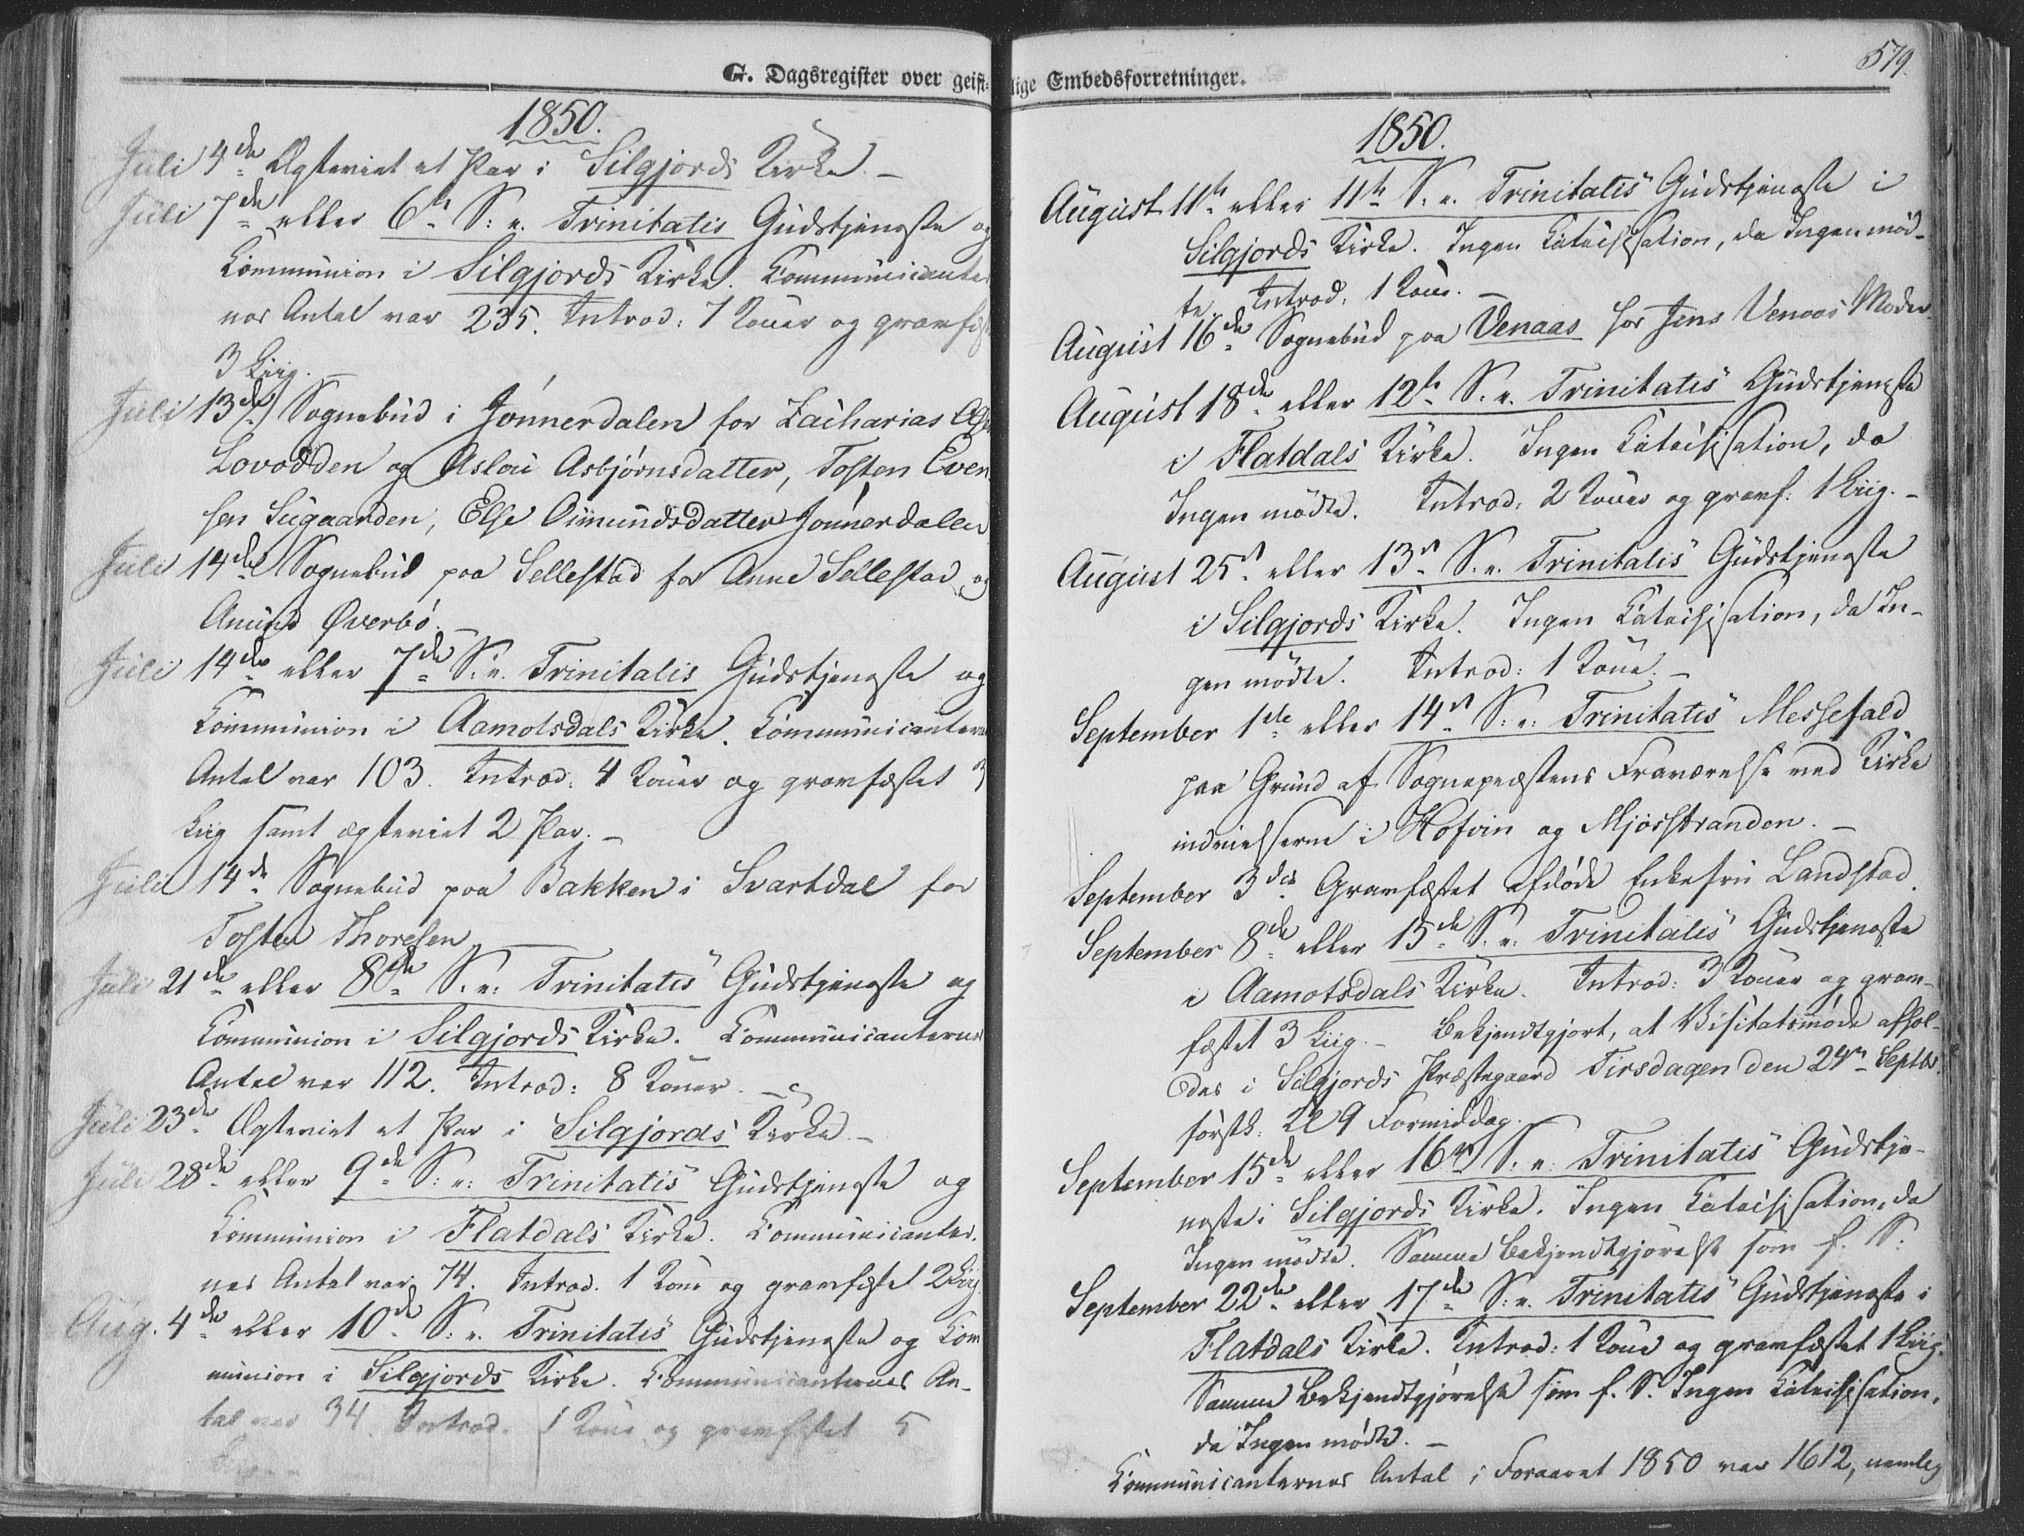 G. Dagsregister over geist-
1850.
Juli 4de Ægteviet et Par i Silgjords Kirke. –
Juli 7de eller 6te S: e. Trinitatis Gudstjeneste og
Communion i Silgjords Kirke. Communicanter
nes Antal var 235. Introd: 7 Koner og gravfæst
3 Liig. –
Juli 13de Sognebud i Jönnerdalen for Zacharias
Lovodden og Aslou Asbjørnsdatter, Tosten Even
sen Lugaarden, Else Osmundsdatter Jönnerdalen
Juli 14de Sognebud paa Sellestad for Anne Sellestad og
Amund Øverbö. –
Juli 14de eller 7de S: e. Trinitatis Gudstjeneste og
Communion i Aamotsdals Kirke. Communicanternes
Antal var 103. Introd: 4 Koner og gravfæstet 3
Liig samt ægteviet 2 Par. –
Juli 14de Sognebud paa Bakken i Svartdal for
Tosten Thoresen
Juli 21de eller 8de S. e: Trinitatis Gudstjeneste og
Communion i Silgjords Kirke. Communicanternes
Antal var 112. Introd: 8 Koner. –
Juli 23de Ægteviet et Par i Silgjords Kirke –
Juli 28de eller 9de S: e: Trinitatis Gudstjeneste og
Communion i Flatdals Kirke. Communicanter-
nes Antal var 74. Introd. 1 Kone og gravfæstet 2 Liig
Aug. 4de eller 10de S: e. Trinitatis Gudstjeneste og Com
munion i Silgjords Kirke. Communicanternes An-
tal var 34. Introd. 1 Kone og gravfæstet 5
Liig. –
lige Embedsforretninger.
579.
1850.
August 11te eller 11te S. e. Trinitatis Gudstjeneste i
Silgjords Kirke. Ingen Catechisation, da Ingen möd-
te. Introd. 1 Kone. –
August 16de Sognebud paa Venaas for Jens Venaas Moder
August 18de eller 12te S. e. Trinitatis Gudstjeneste
i Flatdals Kirke. Ingen Catechisation, da
Ingen mödte. Introd: 2 Koner og gravf: 1 Liig. –
August 25de eller 13de S. e. Trinitatis Gudstjeneste
i Silgjords Kirke. Ingen Catechisation, da In-
gen mödte. Introd: 1 Kone. –
September 1ste eller 14de S: e: Trinitatis Messefald
paa Grund af Sognepræstens Fraværelse ved Kirke
indvielserne i Hofvin og Mjösstranden. –
September 3die Gravfæstet afdöde Enkefru Landstad.
September 8de eller 15de S. e: Trinitatis Gudstjeneste
i Aamotsdals Kirke. Introd: 3 Koner og grav-
fæstet 3 Liig. – Bekjendtgjort, at Visitatsmöde afhol-
des i Silgjords Præstegaard Tirsdagen den 24de Septbr.
förstk. Kl 9 Formiddag.
September 15de eller 16de S. e. Trinitatis Gudstje-
neste i Silgjords Kirke. Ingen Catechisation, da
Ingen mödte. Samme Bekjendtgjörelse som f. S:
September 22de eller 17de S: e. Trinitatis Gudstjeneste i
Flatdals Kirke. Introd: 1 Kone og gravfæstet 1 Liig.
Samme Bekjendtgjörelse som f. S. Ingen Catechisation,
da Ingen mödte. –
Communicanternes Antal i Foraaret 1850 var 1612, nemlig